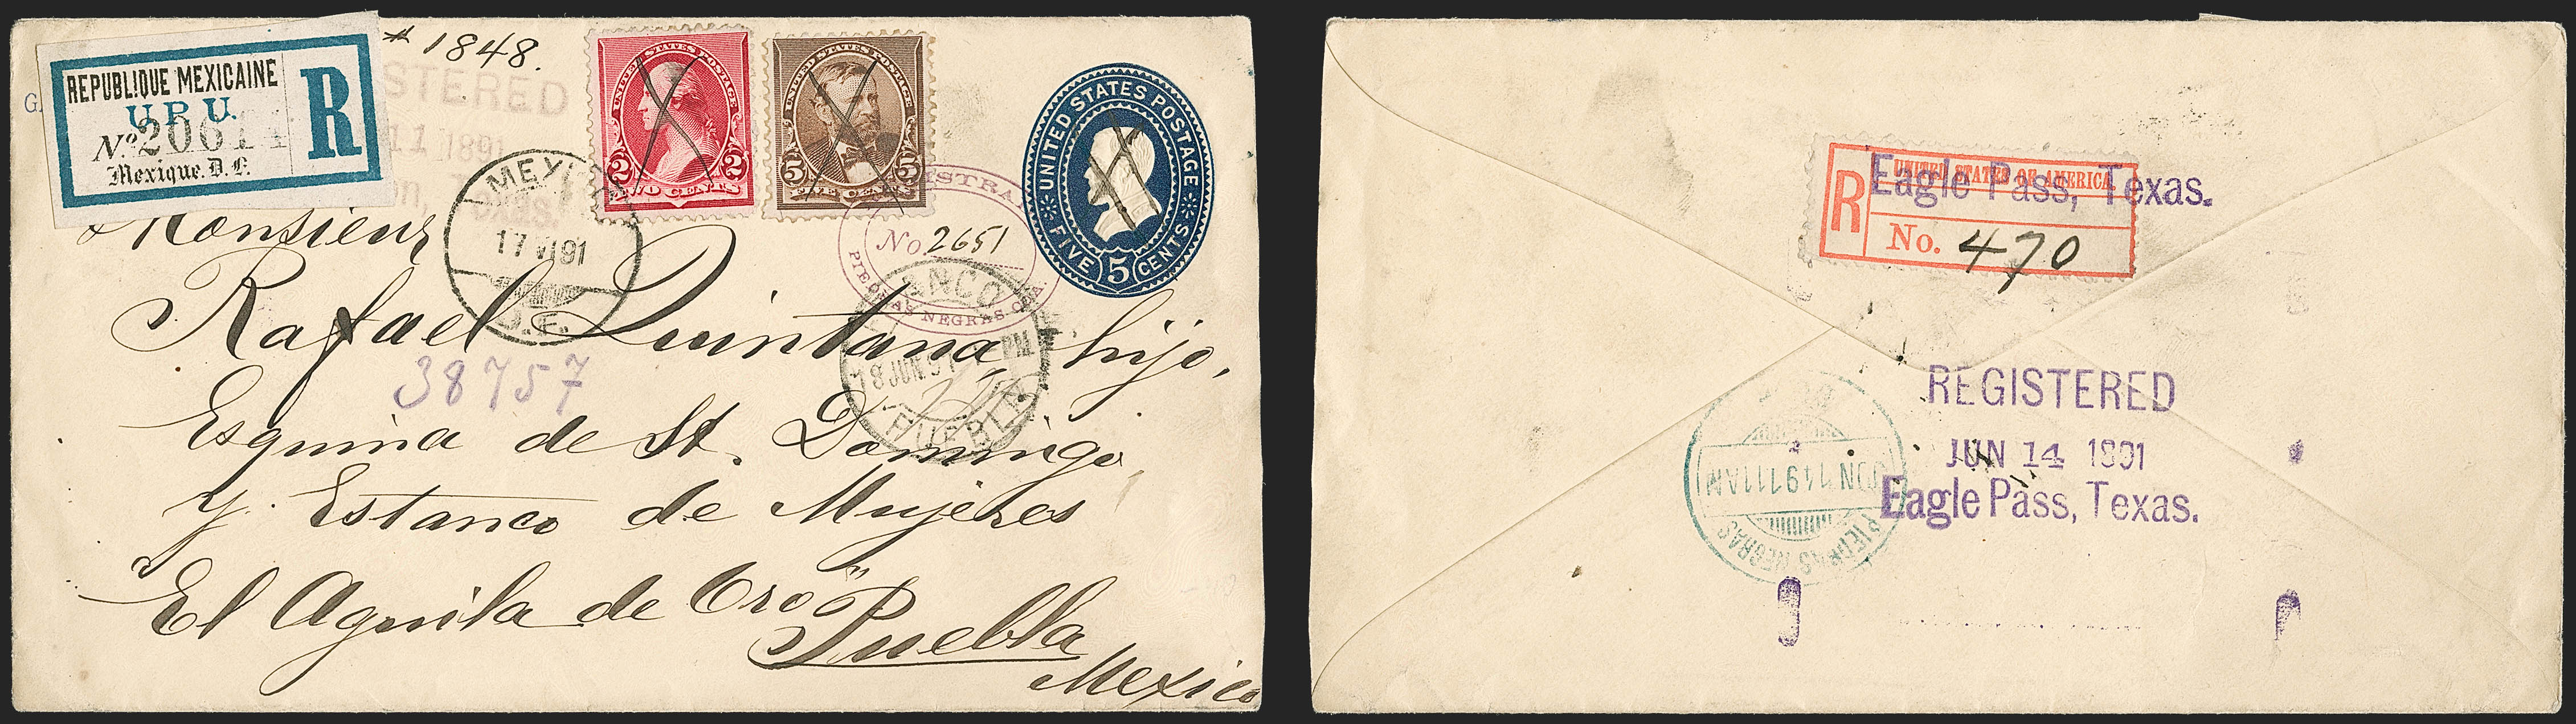 # 1848.
REPUBLIQUE MEXICAINE
U.P.U.
Nº 20614
Mexique. D. F.
R
G.
STERED
11 1891
UNITED STATES POSTAGE
2 2
TWO CENTS
UNITED STATES POSTAGE
5 5
FIVE CENTS
UNITED STATES POSTAGE
FIVE 5 CENTS
No. 2651
PIEDRAS NEGRAS
17 VI 91
D.F.
Monsieur
Rafael Quintana, hijo,
38757
FRANCO
18 JUN. 91 PM
PUEBLA
Esquina de St. Domingo
y. Estanco de Mujeres
El Aguila de Oro"
Puebla
Mexico
R
UNITED STATES OF AMERICA.
Eagle Pass, Texas.
No. 470
REGISTERED
JUN 14 1891
Eagle Pass, Texas.
JUN 14 91 11 AM
PIEDRAS NEGRAS